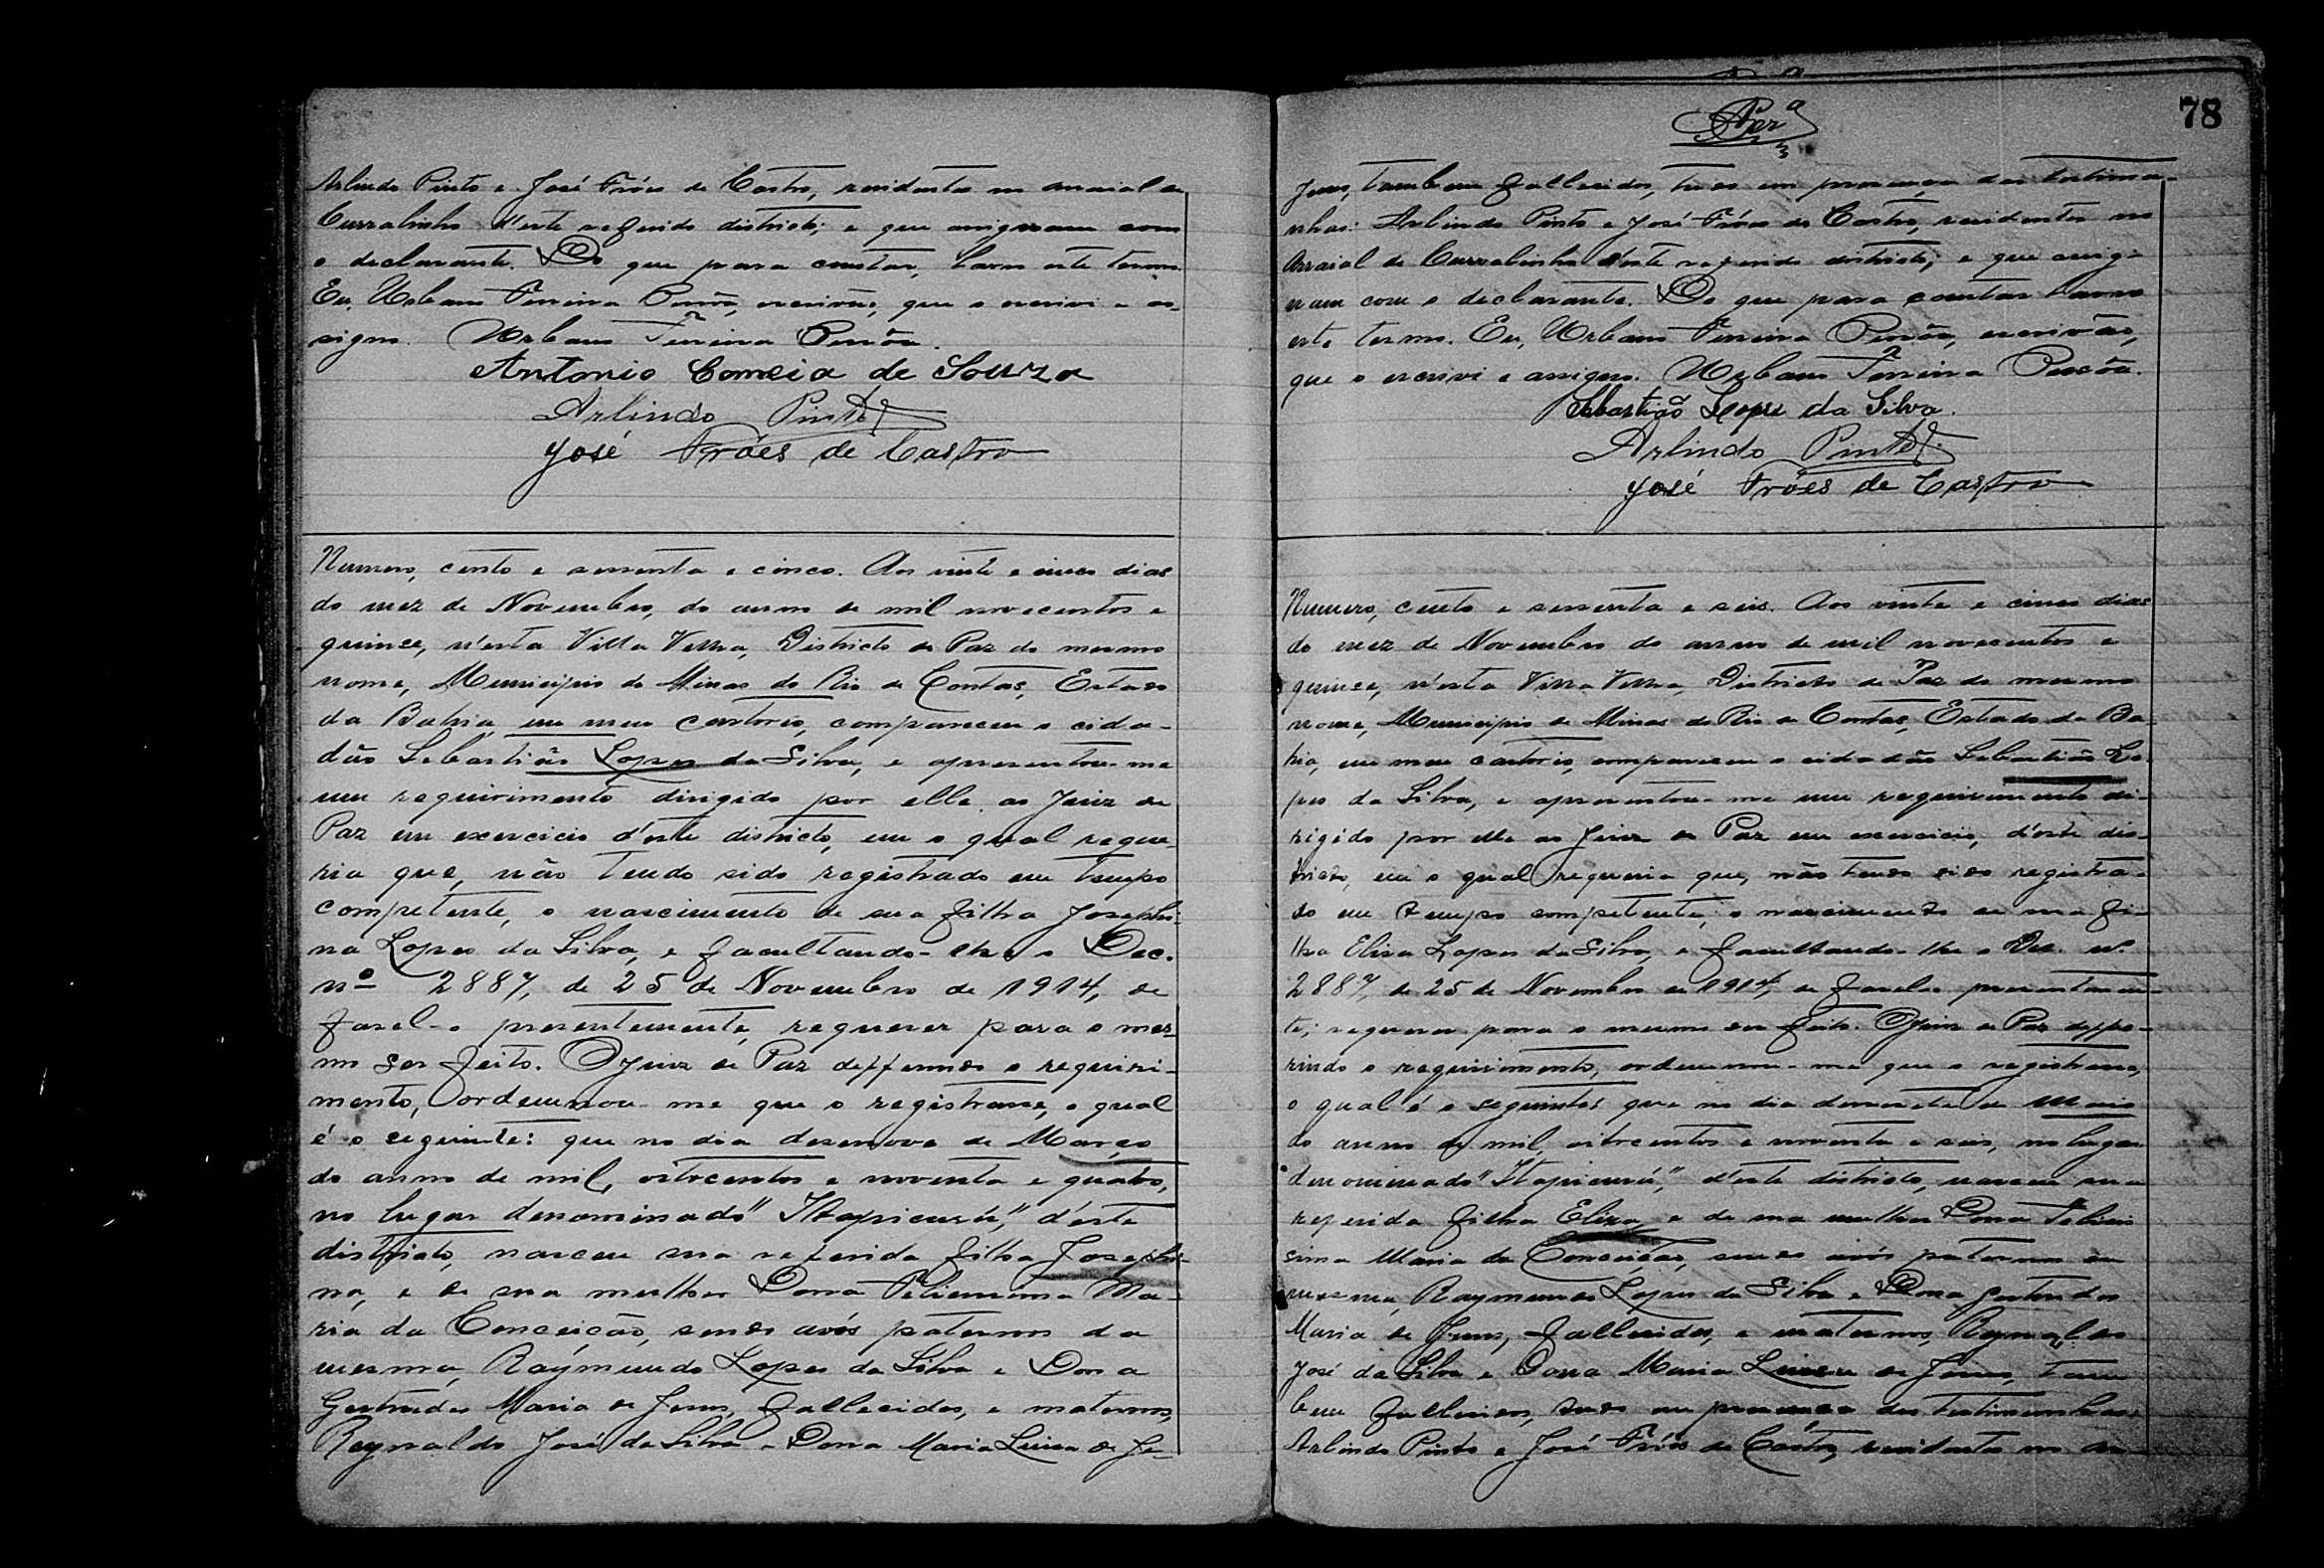 Arlindo Pinto e José Fróes de Castro, residentes no arraial de
Curralinho d'este referido districto; e que assignaram com
o declarante. Do que para constar, lavro este termo.
Eu, Urbano Ferreira Pessôa, escrivão, que o escrevi e as-
signo. Urbano Ferreira Pessôa.
Antonio Correia de Souza
Arlindo Pinto
José Fróes de Castro
Numero, cento e sessenta e cinco. Aos vinte e cinco dias
do mez de Novembro, do anno de mil novecentos e
quinze, n'esta Villa Velha, Districto de Paz do mesmo
nome, Municipio de Minas do Rio de Contas, Estado
da Bahia, em meu cartorio, compareceu o cida-
dão Sebastião Lopes da Silva, e apresentou-me
um requirimento dirigido por elle ao Juiz de
Paz em exercicio d'este districto, em o qual reque-
ria que, não tendo sido registrado em tempo
competente, o nascimento de sua filha Josephi-
na Lopes da Silva, e facultando-lhe o Dec.
nº 2887, de 25 de Novembro de 1914, de
fasel-o presentemente, requerer para o mes-
mo ser feito. O Juiz de Paz defferindo o requiri-
mento, ordennou-me que o registrasse, o qual
é o seguinte: que no dia desenove de Março
do anno de mil, oitocentos e noventa e quatro,
no lugar denominado "Itapicurú," d'este
districto, nasceu sua referida filha Josephi-
na, e de sua mulher Dona Felicissima Ma-
ria da Conceição, sendo avós paternos da
mesma, Raymundo Lopes da Silva e Dona
Gertrudes Maria de Jesus, fallecidos, e maternos,
Reynaldo José da Silva e Dona Maria Luisa de Je-
78
sus, tambem fallecidos, tudo em presença das testimu-
nhas: Arlindo Pinto e José Fróes de Castro, residentes no
Arraial de Curralinho d'este referido districto; e que assig-
nam com o declarante. Do que para constar lavro
este termo. Eu, Urbano Ferreira Pessôa, escrivão,
que o escrevi e assigno. Urbano Ferreira Pessôa.
Sebastião Lopes da Silva.
Arlindo Pinto
José Fróes de Castro
Numero, cento e sessenta e seis. Aos vinte e cinco dias
do mez de Novembro do anno de mil novecentos e
quinze, n'esta Villa Velha, Districto de Paz do mesmo
nome, Municipio de Minas do Rio de Contas, Estado da Ba-
hia, em meu cartorio, compareceu o cidadão Sebastião Lo-
pes da Silva, e apresentou-me um requirimento di-
rigido por elle ao Juiz de Paz em exercicio, d'este dis-
tricto, em o qual requeria que, não tendo sido registra-
do em tempo competente, o nascimento de sua fi-
lha Elisa Lopes da Silva, e facultando-lhe o Dec. nº
2887, de 25 de Novembro de 1914, de fasel-o presentemen-
te, requerer para o mesmo ser feito. O Juiz de Paz deffe-
rindo o requirimento, ordennou-me que o registrasse,
o qual é o seguinte: que no dia de Maio
do anno de mil, oitocentos e noventa e seis, no lugar
denominado "Itapicurú," d'este districto, nasceu sua
referida filha Elisa, e de sua mulher Dona Felicis-
sima Maria da Conceição, sendo avós paternos da
mesma, Raymundo Lopes da Silva e Dona Gertrudes
Maria de Jesus, fallecidos, e maternos, Reynaldo
José da Silva e Dona Maria Luisa de Jesus, tam-
bem fallecidos, tudo em presença das testimunhas:
Arlindo Pinto e José Fróes de Castro, residentes no Ar-